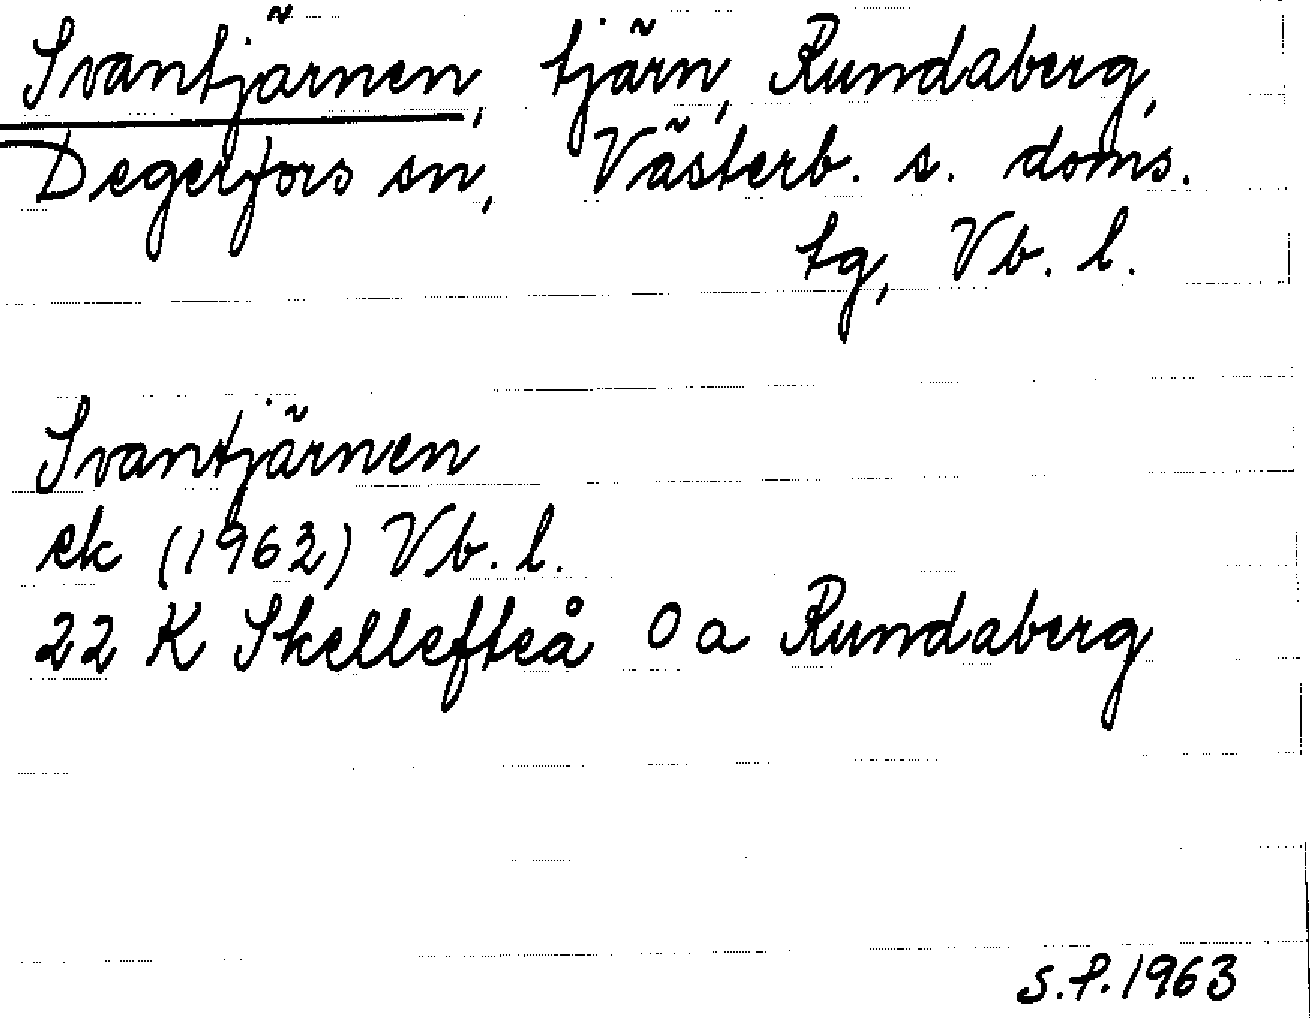 Svantjärnen, tjärn, Rundaberg,
Degerfors sn, Västerb. s. doms.
tg, Vb. l.
Svantjärnen
ek (1962) Vb. l.
22 K Skellefteå 0 a Rundaberg
S.P. 1963